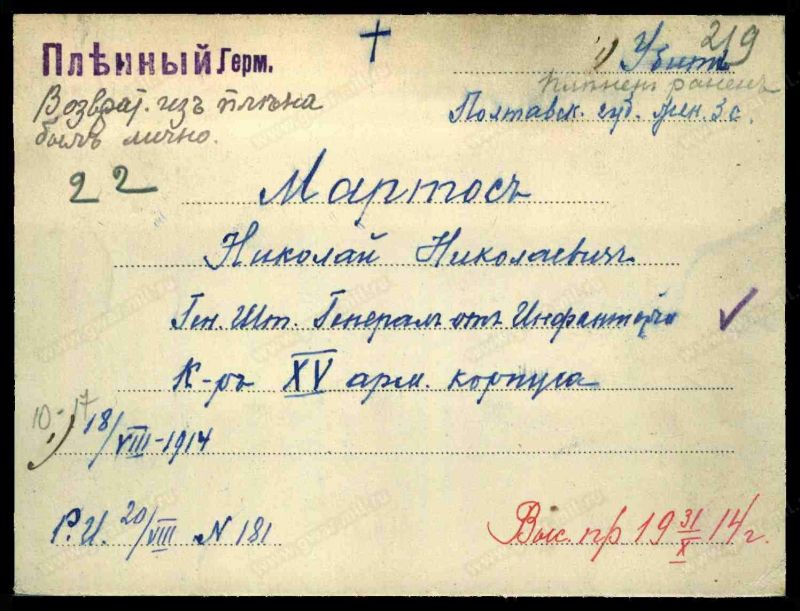 Плѣнный Герм.
219
Убитъ
Возврат. изъ плѣна
былъ лично.
раненъ
Полтавск. губ. жен. 3 с.
22
Мартосъ
Николай Николаевичъ
Ген. Шт. Генералъ отъ Инфантеріи
К-ръ XV арм. корпуса
10-17
18/VIII-1914
Р. И. 20/VIII N 181
Выс. пр 19 31/X 14 г.